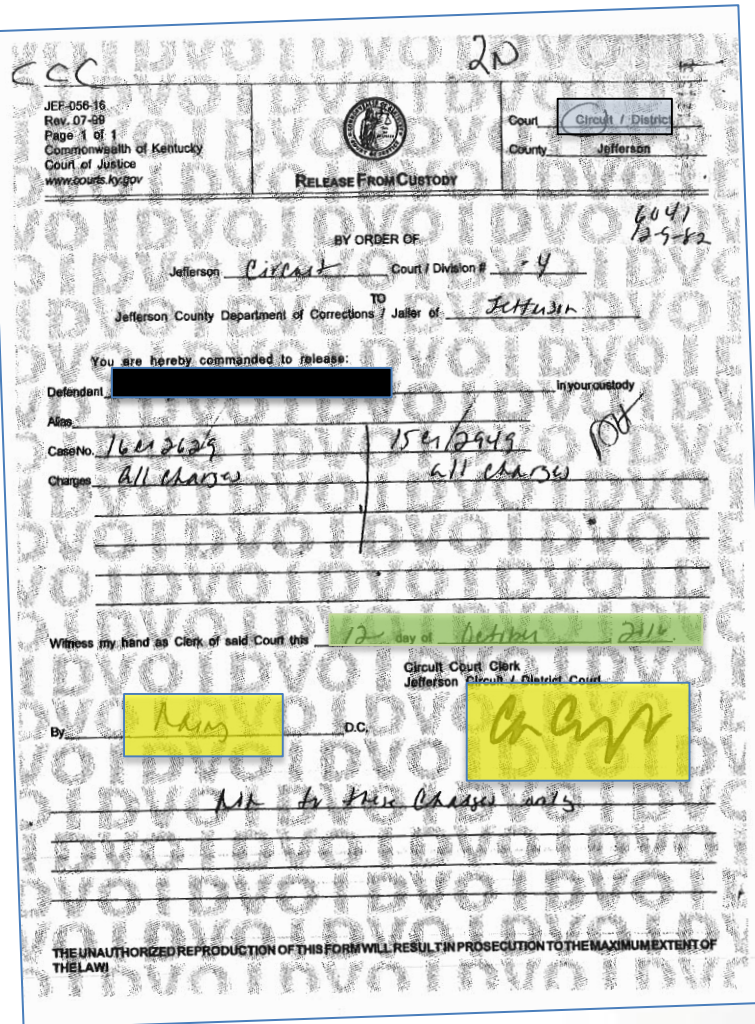 CCC
2N
JEF-056-16
Rev. 07-99
Page 1 of 1
Commonwealth of Kentucky
Court of Justice
www.courts.ky.gov
RELEASE FROM CUSTODY
Court Circuit / District
County Jefferson
6041
12-9-82
BY ORDER OF
Jefferson Circuit Court / Division # -4
TO
Jefferson County Department of Corrections / Jailer of Jefferson
You are hereby commanded to release:
Defendant in your custody
Alias
Case No. 16cr2629 15cr/2949
Charges all charges all charges
Witness my hand as Clerk of said Court this 12 day of October 2016.
Circuit Court Clerk
Jefferson Circuit / District Court
By D.C.
to these Charges only
THE UNAUTHORIZED REPRODUCTION OF THIS FORM WILL RESULT IN PROSECUTION TO THE MAXIMUM EXTENT OF
THE LAW!